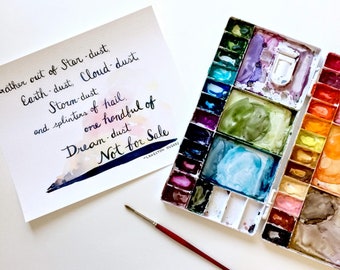 Gather out of Star-dust,
Earth-dust, Cloud-dust,
Storm-dust
and splinters of hail,
one handful of
Dream-dust
Not for Sale